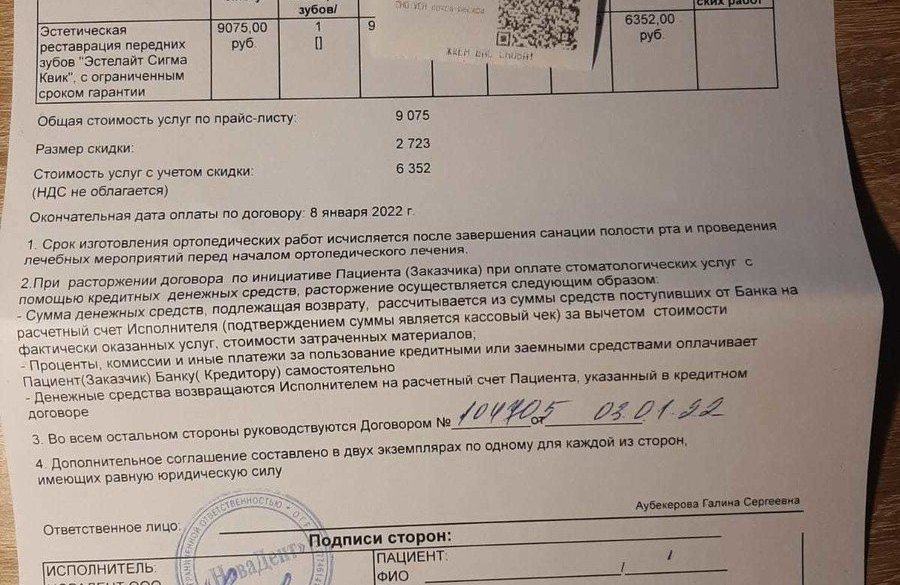 зубов/
ских работ
Эстетическая реставрация передних зубов "Эстелайт Сигма Квик", с ограниченным сроком гарантии
9075,00 руб.
1
[]
9
6352,00 руб.
ЖДЕМ ВАС СНОВА!
Общая стоимость услуг по прайс-листу: 9 075
Размер скидки: 2 723
Стоимость услуг с учетом скидки: 6 352
(НДС не облагается)
Окончательная дата оплаты по договору: 8 января 2022 г.
1. Срок изготовления ортопедических работ исчисляется после завершения санации полости рта и проведения
лечебных мероприятий перед началом ортопедического лечения.
2.При расторжении договора по инициативе Пациента (Заказчика) при оплате стоматологических услуг с
помощью кредитных денежных средств, расторжение осуществляется следующим образом:
- Сумма денежных средств, подлежащая возврату, рассчитывается из суммы средств поступивших от Банка на
расчетный счет Исполнителя (подтверждением суммы является кассовый чек) за вычетом стоимости
фактически оказанных услуг, стоимости затраченных материалов;
- Проценты, комиссии и иные платежи за пользование кредитными или заемными средствами оплачивает
Пациент(Заказчик) Банку( Кредитору) самостоятельно
- Денежные средства возвращаются Исполнителем на расчетный счет Пациента, указанный в кредитном
договоре
3. Во всем остальном стороны руководствуются Договором № 104705 от 03.01.22
4. Дополнительное соглашение составлено в двух экземплярах по одному для каждой из сторон,
имеющих равную юридическую силу
Ответственное лицо:
Аубекерова Галина Сергеевна
Подписи сторон:
«НоваДент»
ИСПОЛНИТЕЛЬ:
ПАЦИЕНТ:
ФИО